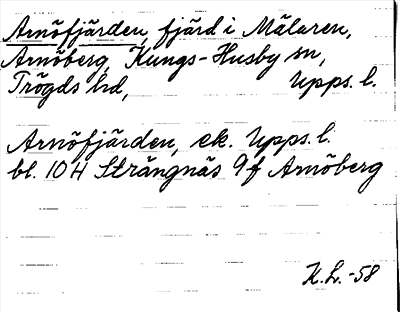 Arnöfjärden, fjärd i Mälaren,
Arnöberg, Kungs-Husby sn,
Trögds hd, Upps. l.
Arnöfjärden, ek. Upps. l.
bl. 10 H Strängnäs 9f Arnöberg
K.L. -58